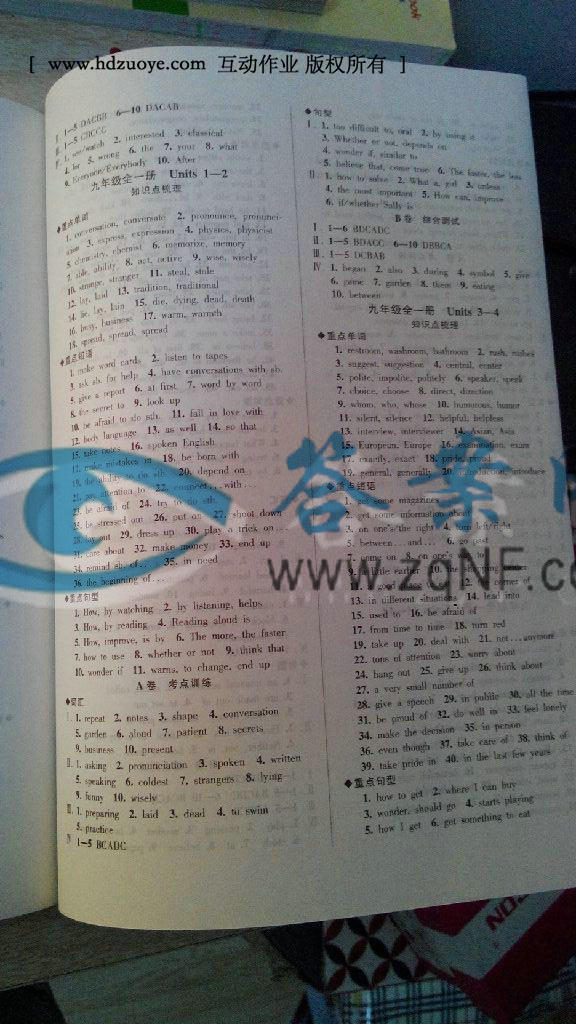 [ www.hdzuoye.com 互动作业 版权所有 ]
Ⅰ. 1—5 DACBB 6—10 DACAB
Ⅱ. 1—5 CBCCC
Ⅲ. 1. see/watch 2. interested 3. classical
4. for 5. wrong 6. the 7. your 8. what
9. Everyone/Everybody 10. After
九年级全一册 Units 1—2
知识点梳理
◆重点单词
1. conversation, conversate 2. pronounce, pronunci-
ation 3. express, expression 4. physics, physicist
5. chemistry, chemist 6. memorize, memory
7. able, ability 8. act, active 9. wise, wisely
10. strange, stranger 11. steal, stole
12. lay, laid 13. tradition, traditional
14. lie, lay, lain 15. die, dying, dead, death
16. busy, business 17. warm, warmth
18. spread, spread, spread
◆重点短语
1. make word cards 2. listen to tapes
3. ask sb. for help 4. have conversations with sb.
5. give a report 6. at first 7. word by word
8. the secret to 9. look up
10. be afraid to do sth. 11. fall in love with
12. body language 13. as well 14. so that
15. take notes 16. spoken English
17. make mistakes in 18. be born with
19. the ability to do sth. 20. depend on
21. pay attention to 22. connect…with…
23. be afraid of 24. try to do sth.
25. be stressed out 26. put on 27. shoot down
28. lay out 29. dress up 30. play a trick on…
31. care about 32. make money 33. end up
34. remind sb. of… 35. in need
36. the beginning of…
◆重点句型
1. How, by watching 2. by listening, helps
3. How, by reading 4. Reading aloud is
5. How, improve, is by 6. The more, the faster
7. how to use 8. whether or not 9. think that
10. wonder if 11. warns, to change, end up
A卷 考点训练
◆词汇
Ⅰ. 1. repeat 2. notes 3. shape 4. conversation
5. garden 6. aloud 7. patient 8. secrets
9. business 10. present
Ⅱ. 1. asking 2. pronunciation 3. spoken 4. written
5. speaking 6. coldest 7. strangers 8. lying
9. funny 10. wisely
Ⅲ. 1. preparing 2. laid 3. dead 4. to swim
5. practice
Ⅳ 1—5 BCADC
◆句型
Ⅰ. 1. too difficult to, oral 2. by using it
3. Whether or not, depends on
4. wonder if, similar to
5. believe that, come true 6. The faster, the less
Ⅱ 1. how to solve 2. What a, girl 3. unless
4. the most important 5. How can, improve
6. if/whether Sally is
B卷 综合测试
Ⅰ 1—6 BDCADC
Ⅱ. 1—5 BDACC 6—10 DBBCA
Ⅲ. 1—5 DCBAB
Ⅳ 1. began 2. also 3. during 4. symbol 5. give
6. game 7. garden 8. them 9. eating
10. between
九年级全一册 Units 3—4
知识点梳理
◆重点单词
1. restroom, washroom, bathroom 2. rush, rushes
3. suggest, suggestion 4. central, center
5. polite, impolite, politely 6. speaker, speak
7. choice, choose 8. direct, direction
9. whom, who, whose 10. humorous, humor
11. silent, silence 12. helpful, helpless
13. interview, interviewer 14. Asian, Asia
15. European, Europe 16. examination, exam
17. exactly, exact 18. pride, proud
19. general, generally 20. introduction, introduce
◆重点短语
1. get some magazines
2. get some information about
3. on one's/the right 4. turn left/right
5. between…and… 6. go past
7. going on 8. on one's way to
9. a little earlier 10. the shopping center
11. a good place to 12. the corner of
13. in different situations 14. lead into
15. used to 16. be afraid of
17. from time to time 18. turn red
19. take up 20. deal with 21. not…anymore
22. tons of attention 23. worry about
24. hang out 25. give up 26. think about
27. a very small number of
28. give a speech 29. in public 30. all the time
31. be proud of 32. do well in 33. feel lonely
34. make the decision 35. in person
36. even though 37. take care of 38. think of
39. take pride in 40. in the last few years
◆重点句型
1. how to get 2. where I can buy
3. wonder, should go 4. starts playing
5. how I get 6. get something to eat
答案
www.zqNF.com